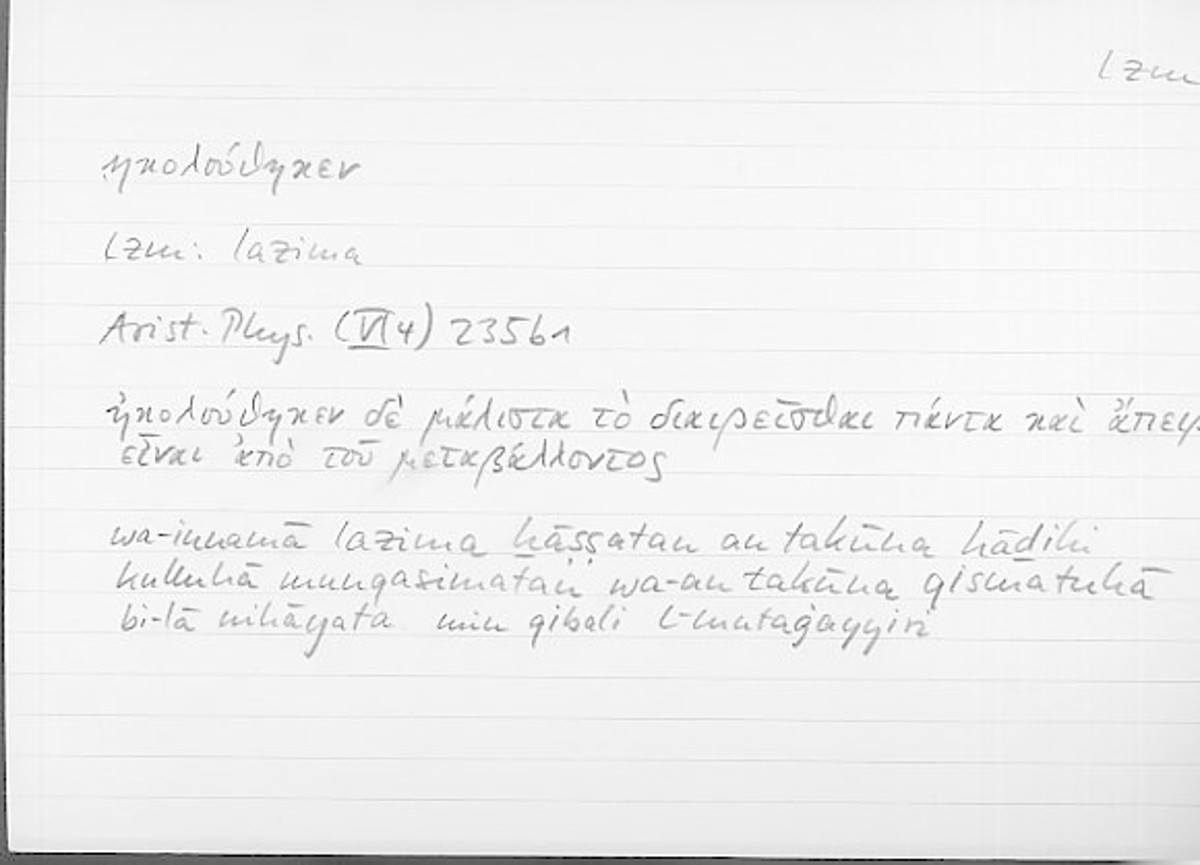 lzm
ηκολούθηκεν
lzm: lazima
Arist. Phys. (VI 4) 235b1
ἠκολούθηκεν δὲ μάλιστα τὸ διαιρεῖσθαι πάντα καὶ ἄπειρ
εἶναι ἀπὸ τοῦ μεταβάλλοντος
wa-innamā lazima ḫāṣṣatan an takūna hāḏihi
kulluhā munqasimatan wa-an takūna qismatuhā
bi-lā nihāyata min qibali l-mutaġayyiri